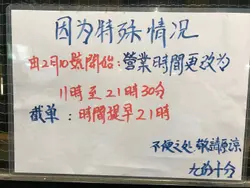 因为特殊情况
由2月10號開始:營業時間更改为
11時至21時30分
截单:時間提早21時
不便之处敬請原谅
九的十分